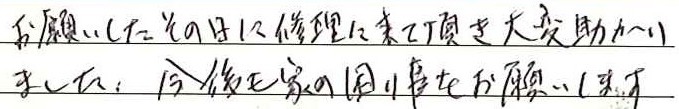 お願いしたその日に修理に来て頂き大変助かり
ました。今後も家の困り事をお願いします